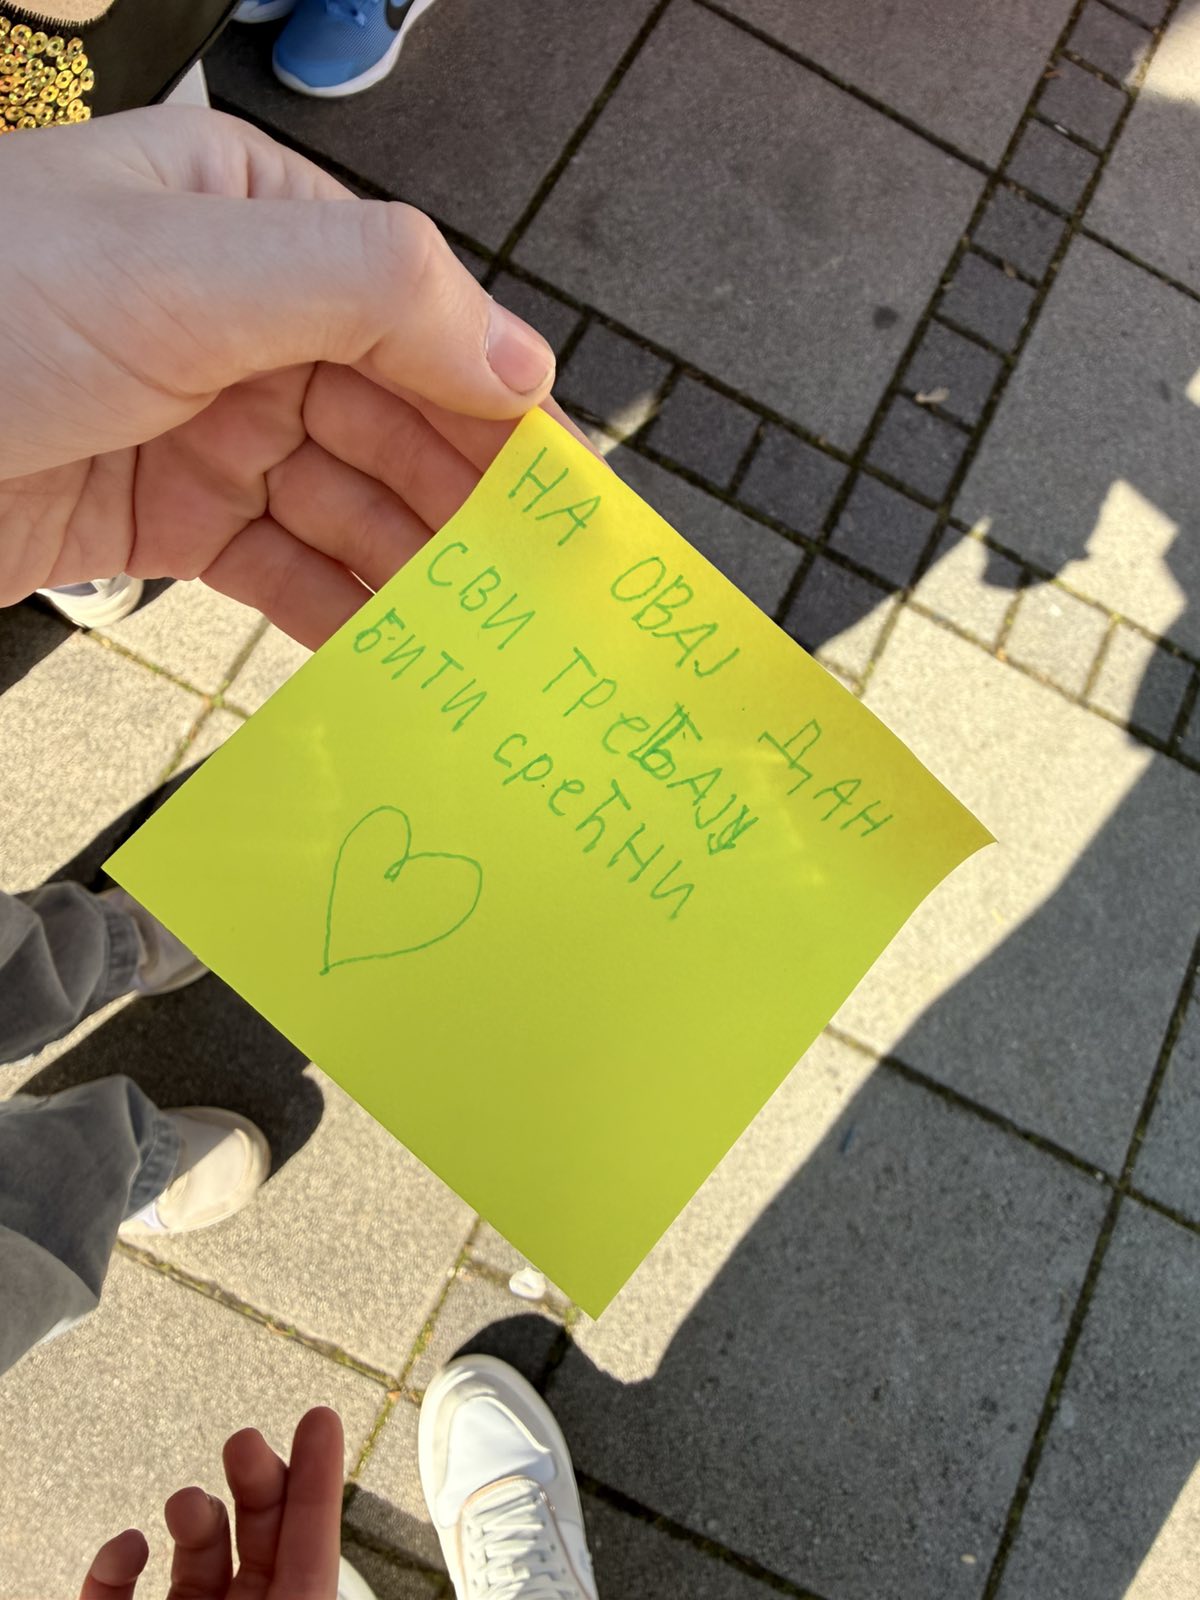 НА ОВАЈ ДАН
СВИ ТРеБАЈУ
БИТИ срећНИ